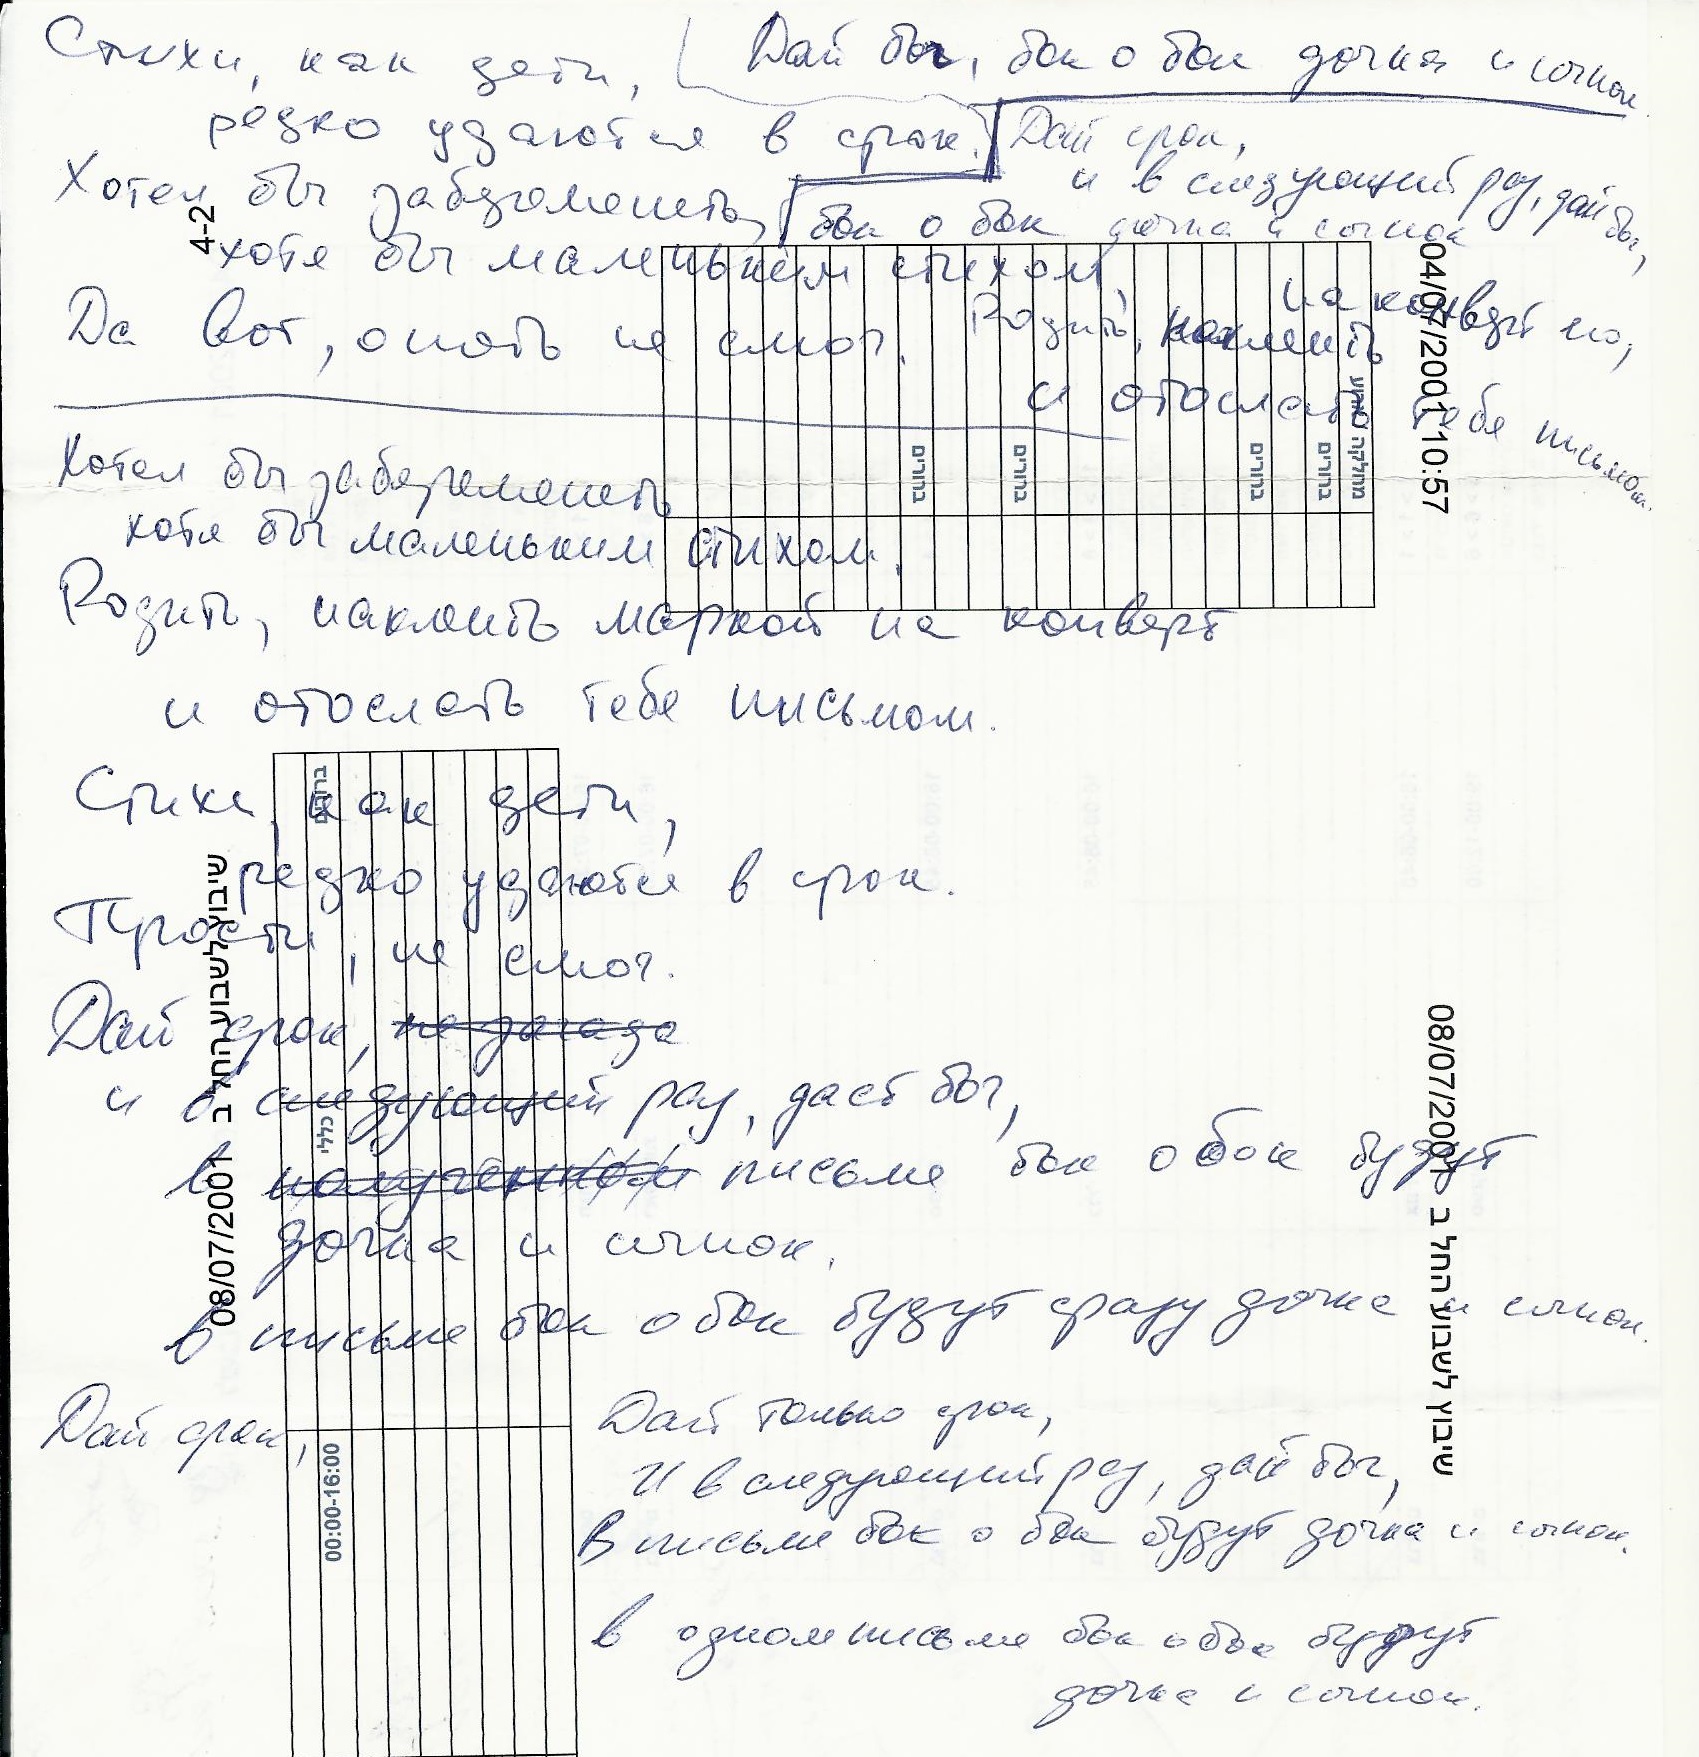 Стихи, как дети,
Дай бог, бок о бок дочка и сынок
редко удаются в срок.
Дай срок,
и в следующий раз, дай бог,
Хотел бы забеременеть
бок о бок дочка и сынок
4-2
хотя бы маленьким стихом,
04/07/2001 10:57
Да вот, опять не смог.
Родить, наклеить на конверт
и отослать тебе письмом.
מחלקה
ברורים
ברורים
ברורים
ברורים
Хотел бы забеременеть
хотя бы маленьким стихом.
Родить, наклеить маркой на конверт
и отослать тебе письмом.
Стихи, как дети,
редко удаются в срок.
Прости, не смог.
Дай срок, не загадо
и в следующий раз, даст бог,
в полученном письме бок о бок будут
дочка и сынок.
в письме бок о бок будут сразу дочка и сынок.
ברורים
כללי
00:00-16:00
שיבוץ לשבוע החל ב 08/07/2001
08/07/2001 שיבוץ לשבוע החל ב
Дай срок,
Дай только срок,
И в следующий раз, дай бог,
В письме бок о бок будут дочка и сынок.
в одном письме бок о бок будут
дочка и сынок.